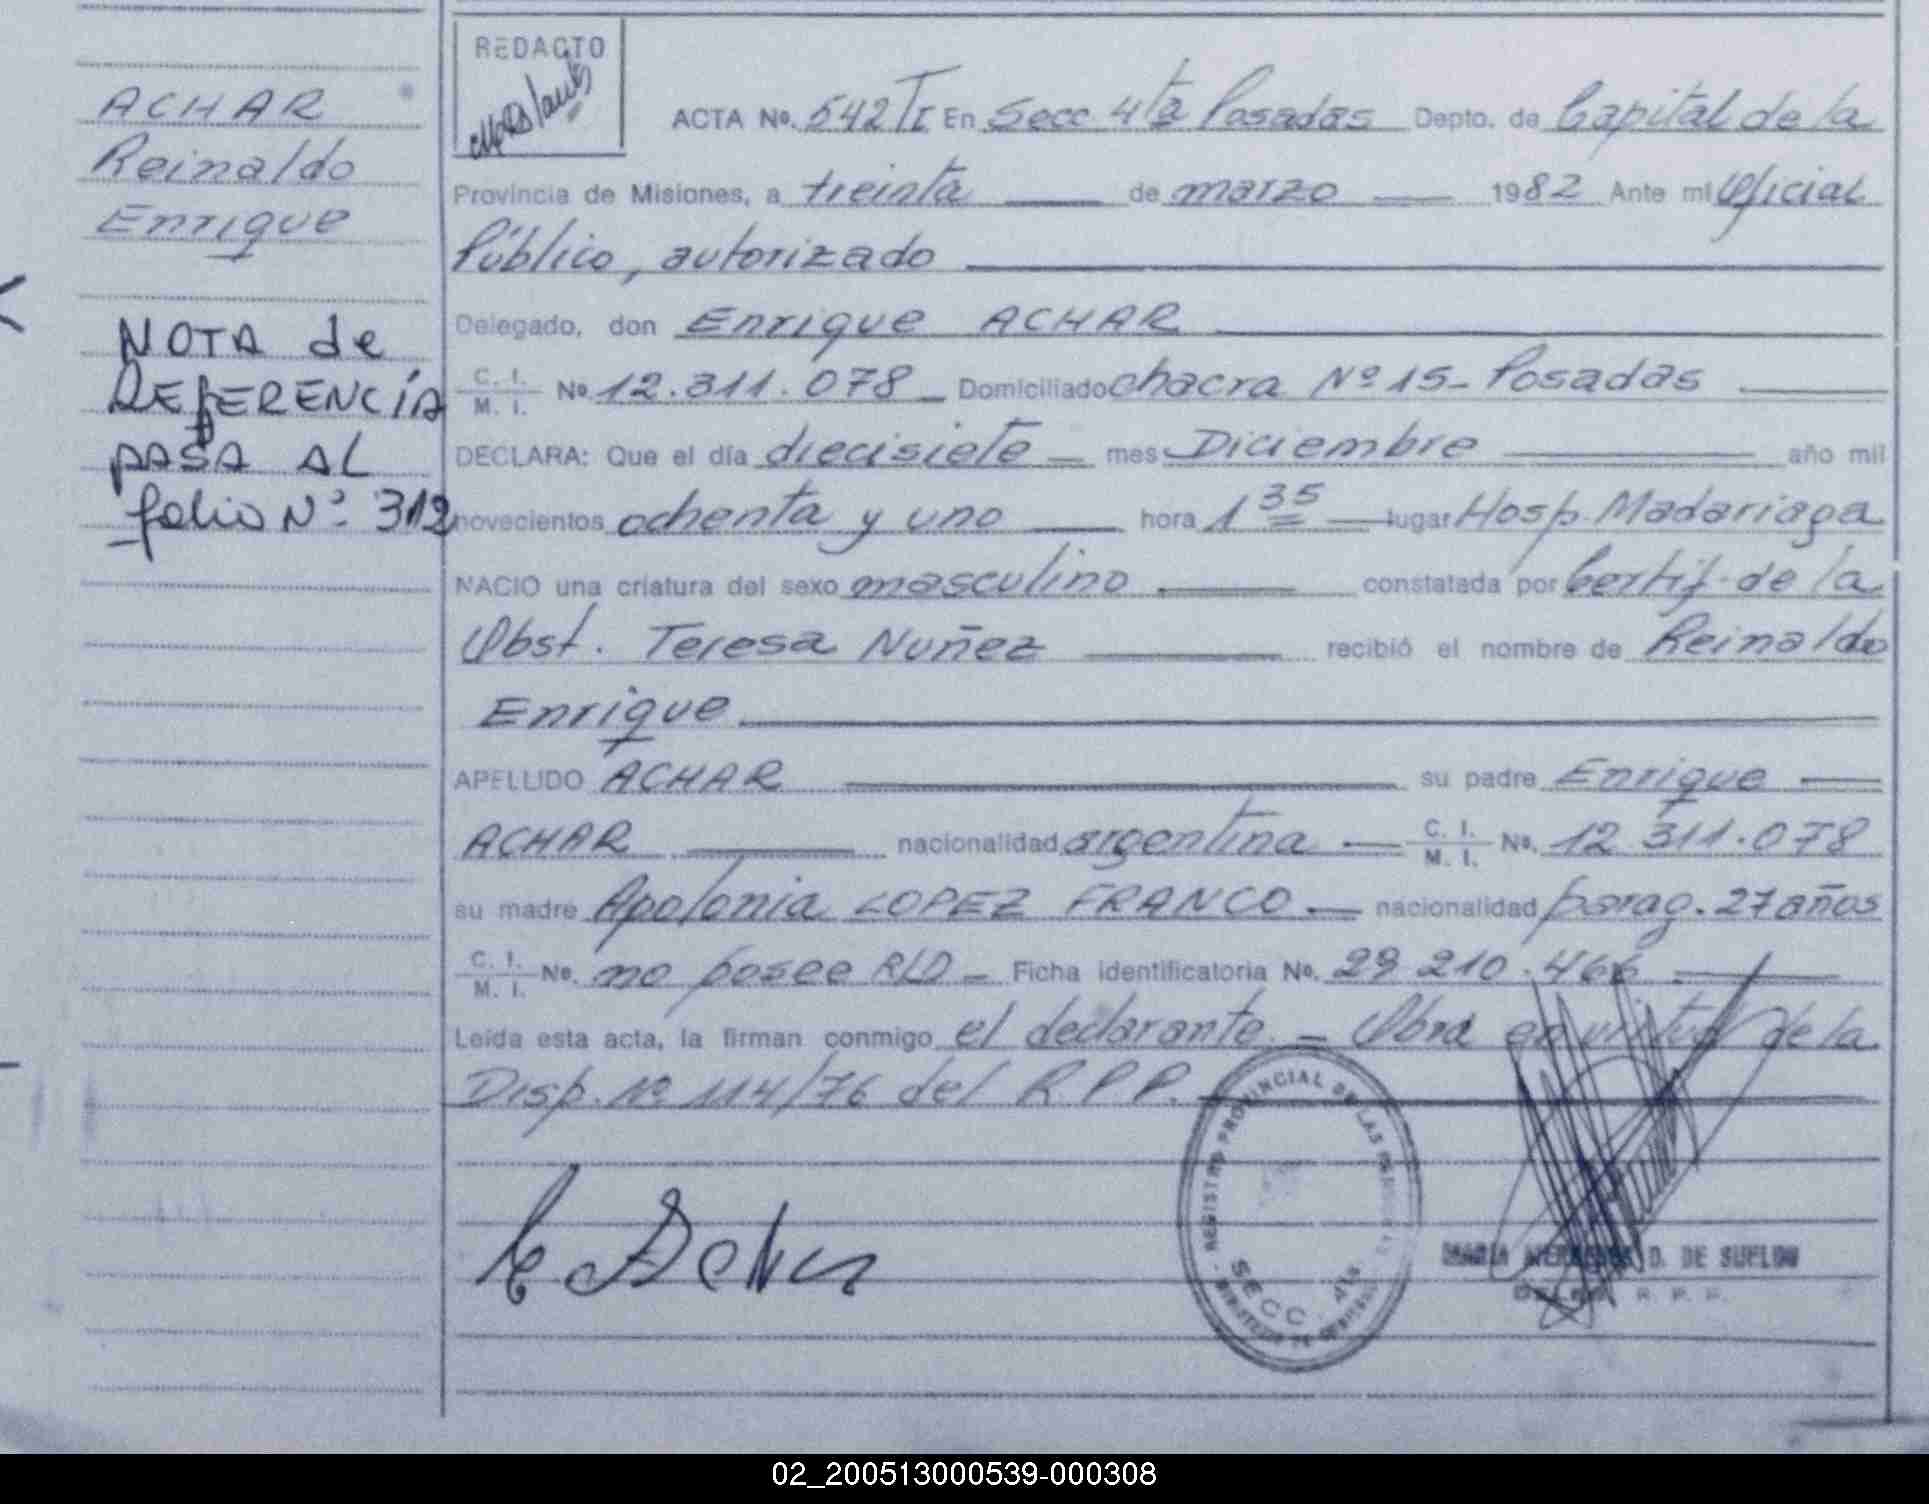 ACHAR
Reinaldo
Enrique
NOTA de
REFERENCIA
PASA AL
folio Nº 312
REDACTO
ACTA Nº. 542 TI En Secc 4ta Posadas Depto. de Capital de la
Provincia de Misiones, a treinta de marzo 1982 Ante mí Oficial
Público, autorizado
Delegado, don Enrique ACHAR
C. I.
M. I. Nº 12.311.078 Domiciliado chacra Nº 15- Posadas
DECLARA: Que el día diecisiete mes Diciembre año mil
novecientos ochenta y uno hora 1 35 lugar Hosp. Madariaga
NACIO una criatura del sexo masculino constatada por Certif. de la
Obst. Teresa Nuñez recibió el nombre de Reinaldo
Enrique
APELLIDO ACHAR su padre Enrique
ACHAR nacionalidad argentina C. I.
M. I. Nº. 12 311.078
su madre Apolonia LOPEZ FRANCO nacionalidad parag. 27 años
C. I.
M. I. Nº. no posee RLD Ficha identificatoria Nº. 29 210.466
Leída esta acta, la firman conmigo el declarante. - Obra en virtud de la
Disp. Nº 114/76 del R.P.P.
REGISTRO PROVINCIAL DE LAS
SECC 4ta
MARIA D. DE SUELOW
R. P. P.
02_200513000539-000308